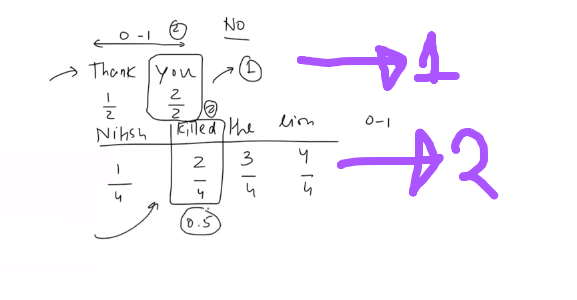 0-1 ② No
Thank You → ① → 1
1/2 2/2 ②
Nitish killed the lion 0-1
1/4 2/4 3/4 4/4 → 2
0.5